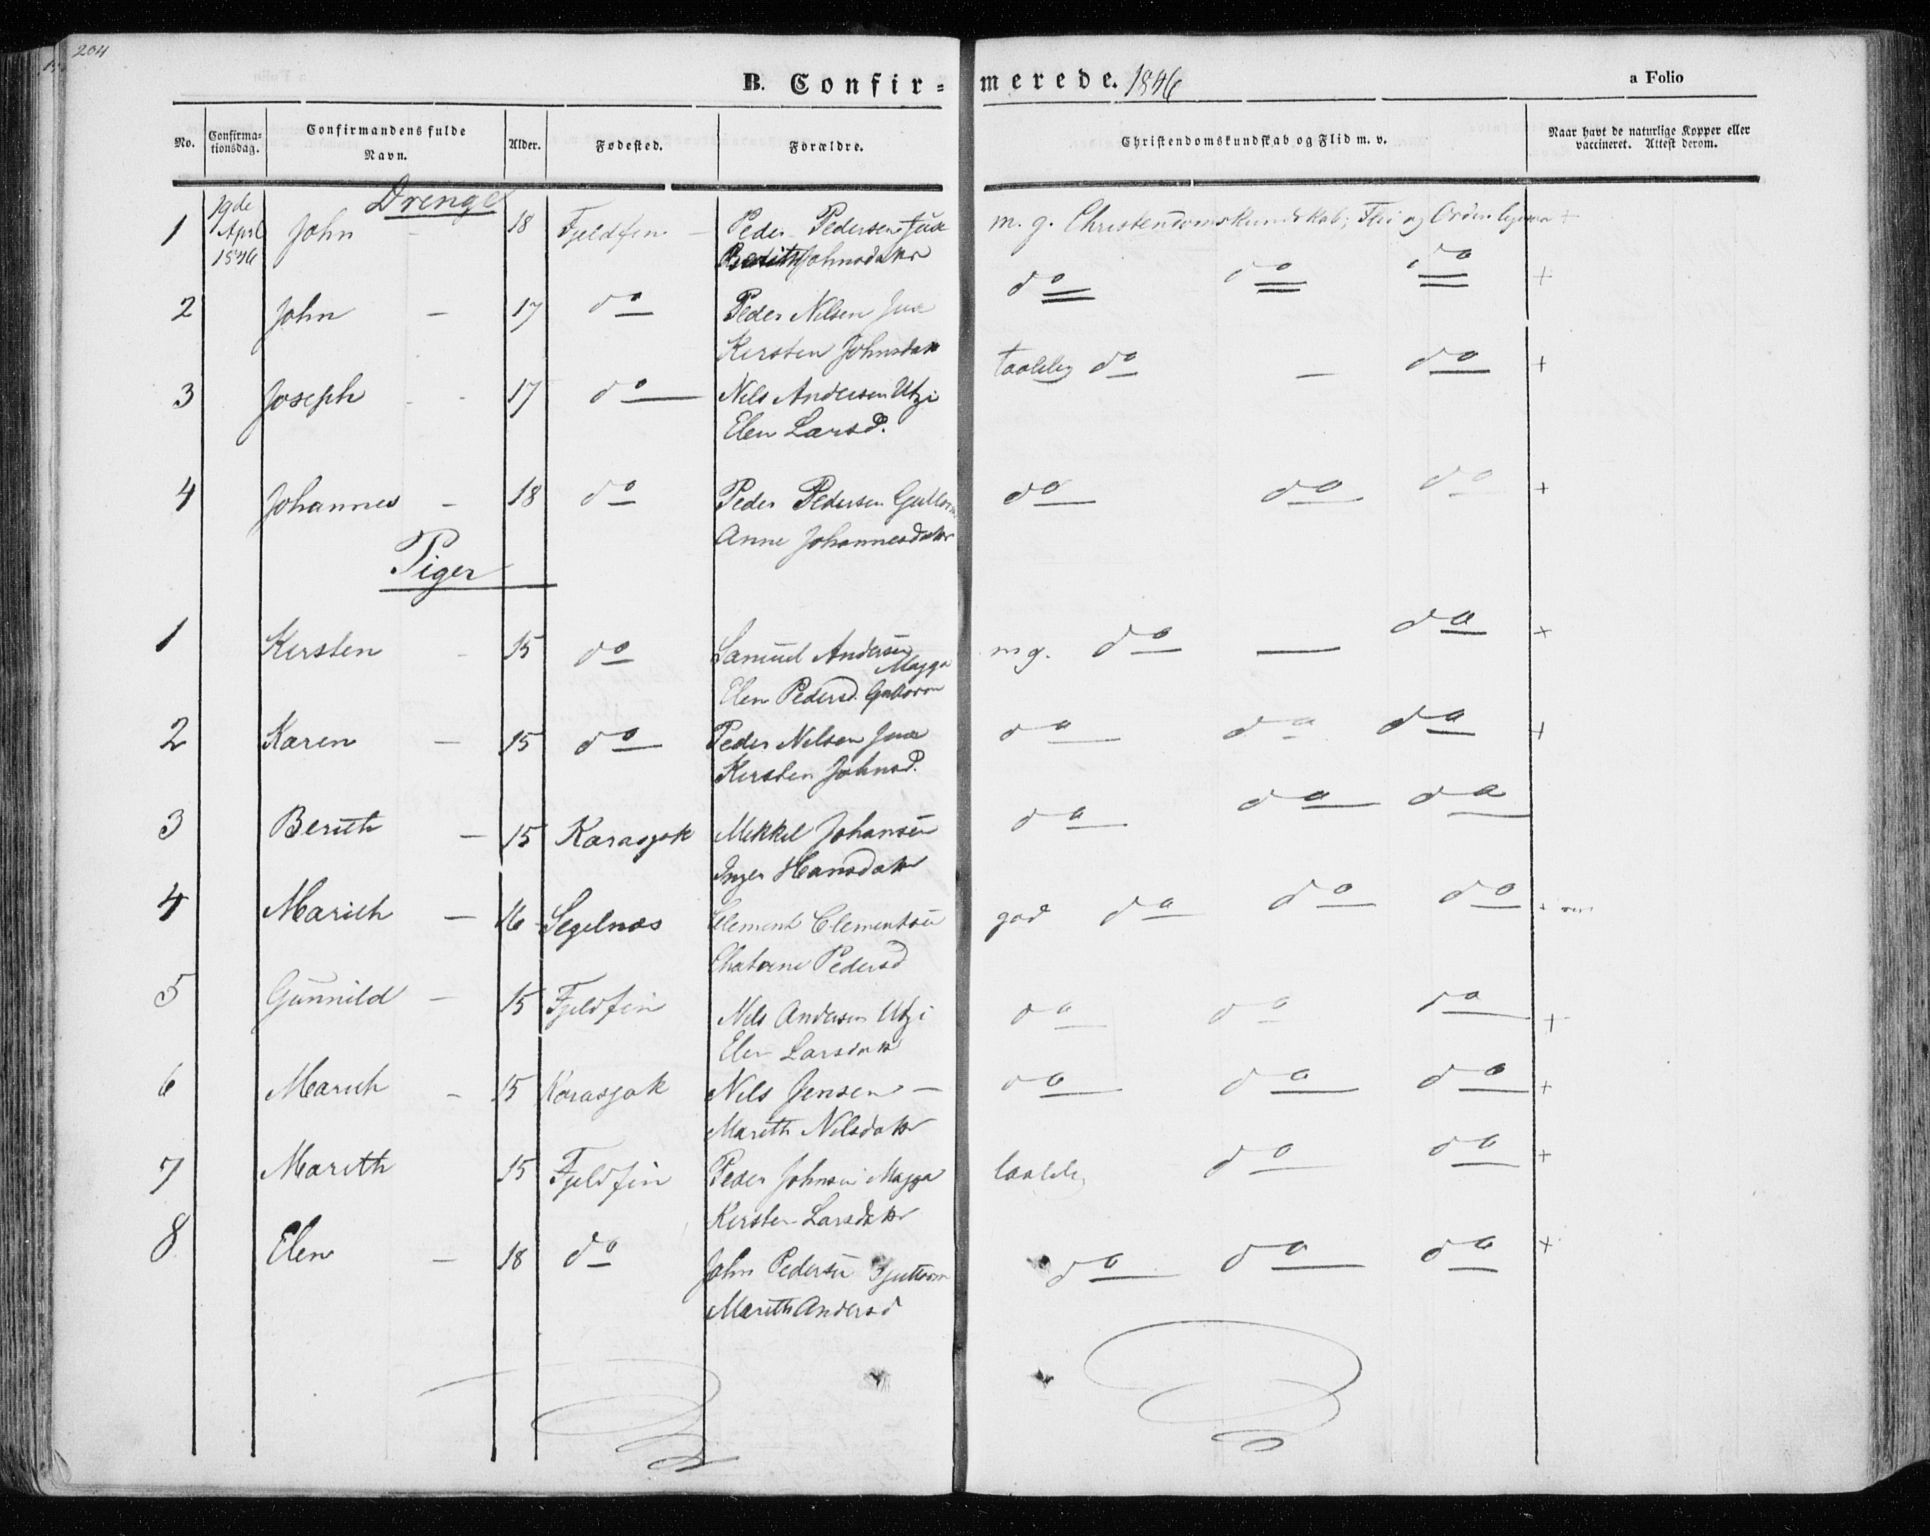 204
B. Confir= merede. 1846
a Folio
No. Confirma-tionsdag. Confirmandens fulde Navn. Alder. Fødested. Forældre. Christendomskundskab og Flid m. v. Naar havt de naturlige Kopper eller vaccineret. Attest derom.
Drenge
1 19de April 1846 John - 18 Fjeldfin - Peder Pedersen Juxe m. g. Christendomskundskab, Flid og Orden +
Berith Johnsdatter
2 John - 17 do Peder Nilsen Juxe do do do +
Kersten Johnsdatr
3 Joseph - - 17 do Nils Andersen Utzi taalelig do - do +
Elen Larsd.
4 Johannes - 18 do Peder Pedersen Guttorm do do do +
Anne Johannesdatr
Piger
1 Kersten - 15 do Samuel Andersen Magga mg. do — do +
Elen Pedersd. Guttorm
2 Karen - 15 do Peder Nilsen Juxe do do do +
Kersten Johnsd.
3 Berith - 15 Karasjok Mikkel Johansen do do do
Inger Hansdatr
4 Marith - 16 Segelnæs Clement Clementsen god do do do +
Pedersd
5 Gunnild - 15 Fjeldfin Nils Andersen Utzi do do do +
Elen Larsdatr
6 Marith - 15 Karasjok Nils Jensen - do do do +
Marith Nilsdatr
7 Marith 15 Fjeldfin Peder Johnsen Magga taalelig do do +
Kersten Larsdatr
8 Elen - 18 do John Pedersen Guttorm do do do +
Marith Andersd